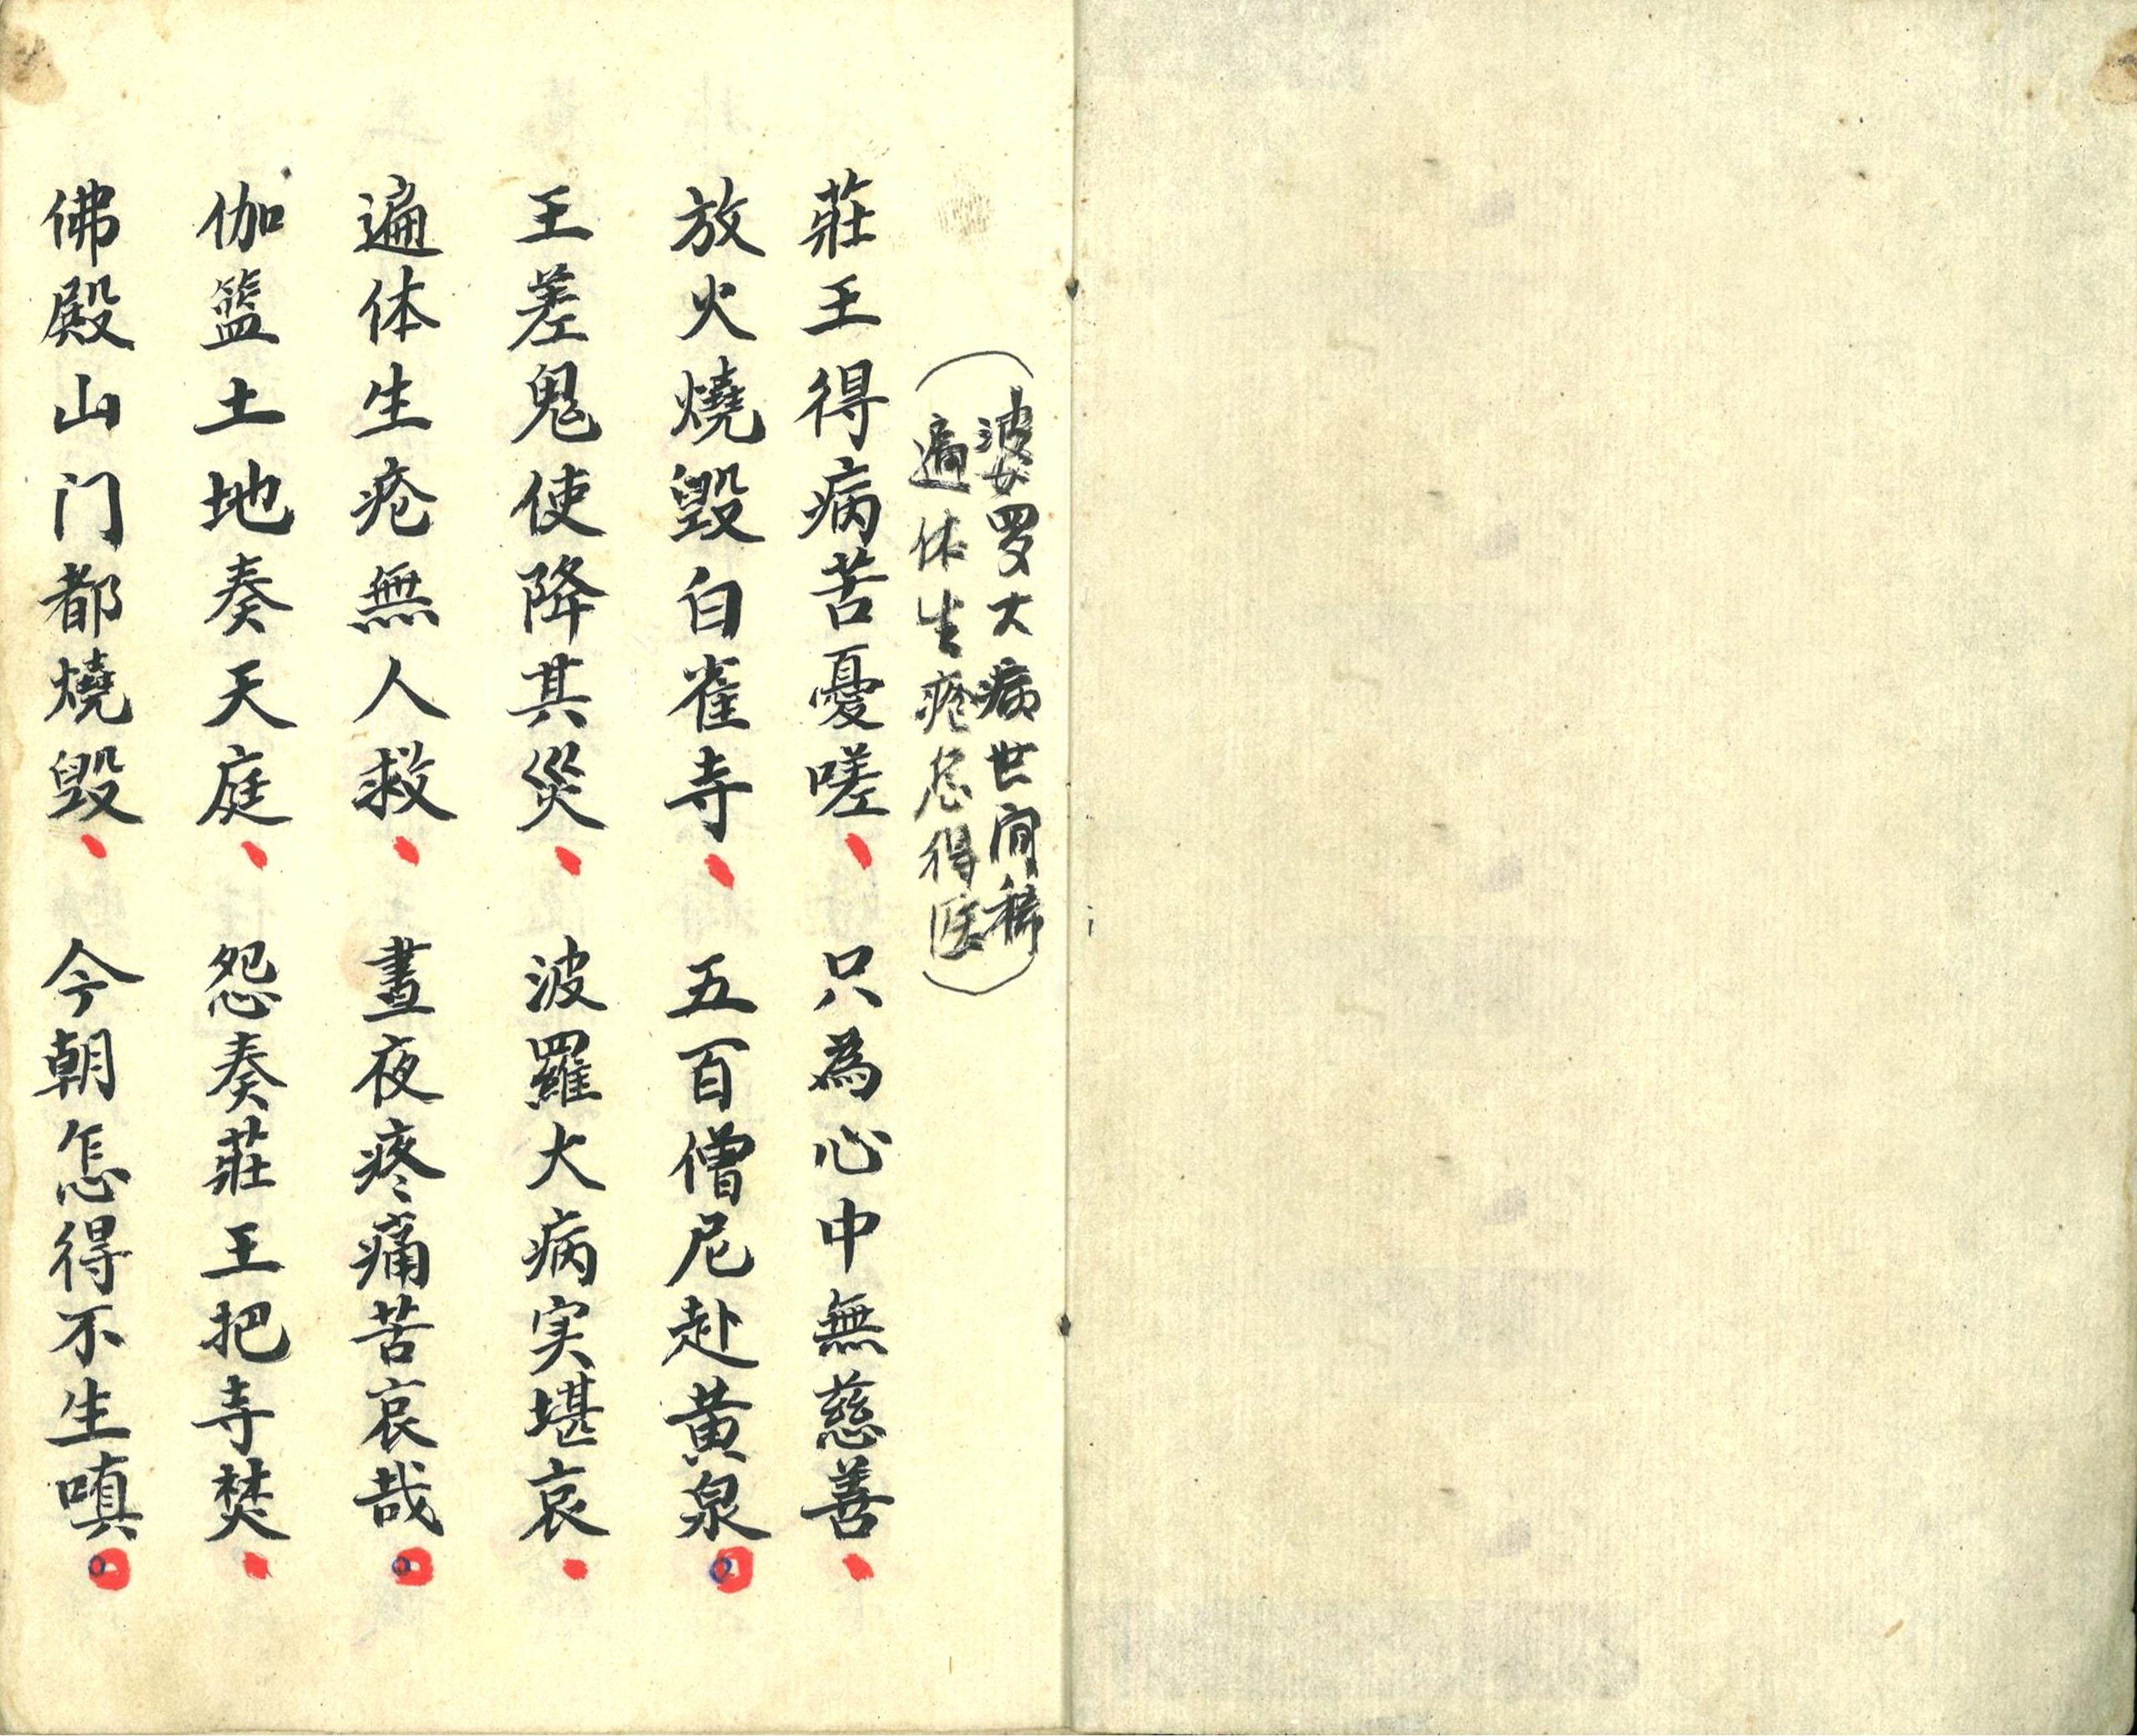 （婆罗大病世间稀
遍体生疮怎得医）
莊王得病苦憂嗟、只為心中無慈善、
放火燒毀白雀寺、五百僧尼赴黄泉。
王差鬼使降其災、波羅大病实堪哀、
遍体生疮無人救、晝夜疼痛苦哀哉。
伽籃土地奏天庭、怨奏莊王把寺焚、
佛殿山门都燒毀、今朝怎得不生嗔。